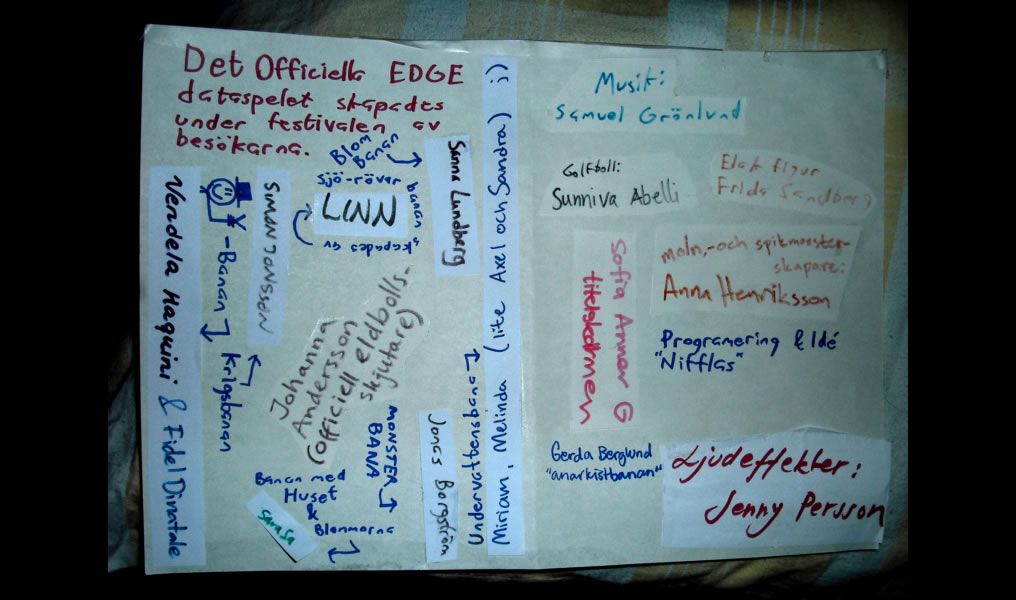 Det Officiella EDGE
dataspelet skapades
under festivalen av
besökarna.
Blom
Banan
Sanna Lundberg
Sjö-rövar
banan
skapades av
LINN
SIMON JONSSON
-Banan
Krigsbanan
Vendela Haquini & Fidel Dinatale
Johanna
Andersson
(officiell eldbolls-
skjutare)
MONSTER
BANA
Jonas Borgström
Banan med
Huset
&
Blommorna
Sarasa
Undervattensbanan
Miriam, Melinda (lite Axel och Sandra) :)
Musik:
Samuel Grönlund
Golfboll:
Sunniva Abelli
Elak figur
Frida Sandberg
Sofia Anner G
titelskärmen
moln,-och spikmonster-
skapare:
Anna Henriksson
Programering & Idé
"Nifflas"
Gerda Berglund
"anarkistbanan"
Ljudeffekter:
Jenny Persson